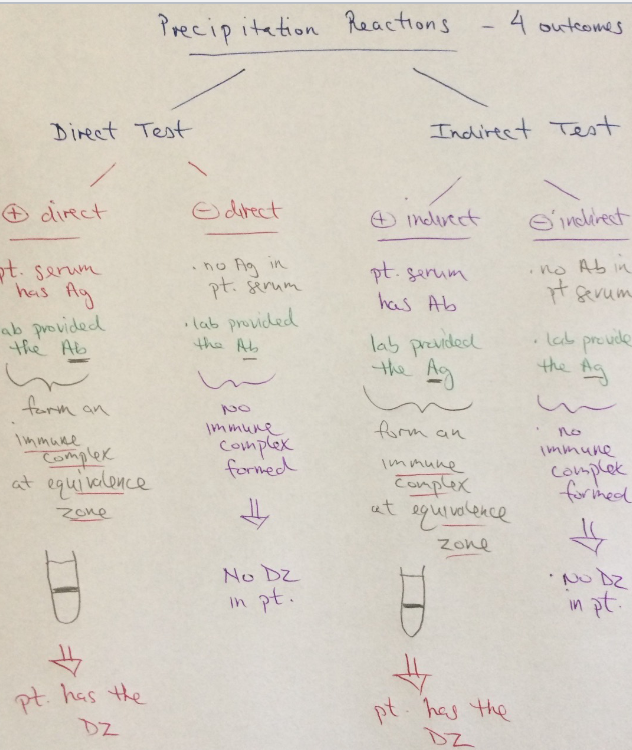 Precipitation Reactions - 4 outcomes
Direct Test
Indirect Test
⊕ direct
pt. serum
has Ag
ab provided
the Ab
form an
immune
complex
at equivalence
zone
pt. has the
DZ
⊖ direct
· no Ag in
pt. serum
· lab provided
the Ab
no
immune
complex
formed
No DZ
in pt.
⊕ indirect
pt. serum
has Ab
lab provided
the Ag
form an
immune
complex
at equivalence
zone
pt. has the
DZ
⊖ indirect
· no Ab in
pt serum
· lab provide
the Ag
· no
immune
complex
formed
· No DZ
in pt.